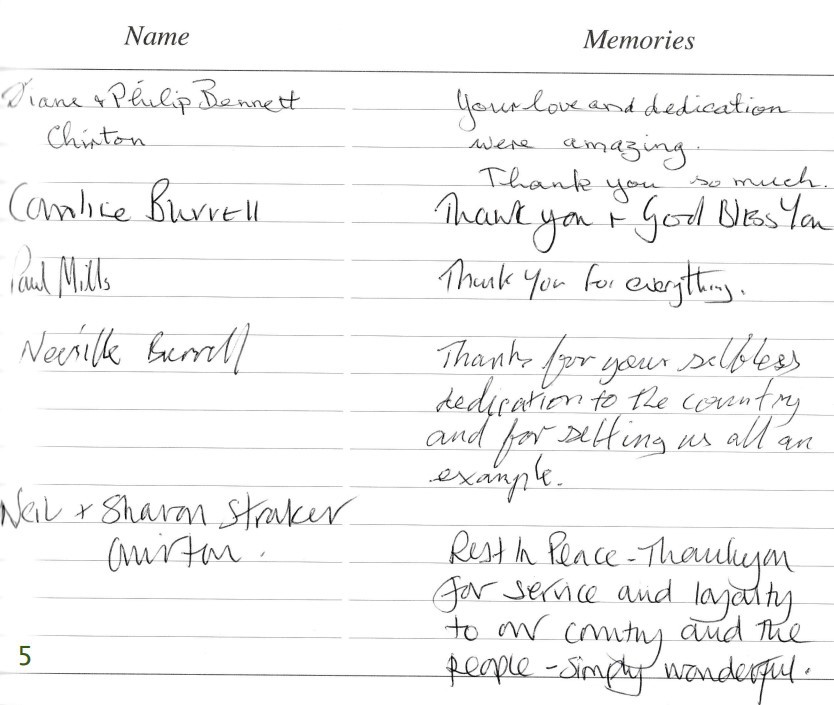 Name Memories
Diane + Philip Bennett
Chirton
Your love and dedication
were amazing.
Thank you so much.
Candice Burrell
Thank you + God Bless You
Paul Mills
Thank You for everything.
Neville Burrell
Thanks for your selfless
dedication to the country
and for setting us all an
example.
Neil + Sharon Straker
Chirton.
Rest In Peace - Thank you
for service and loyalty
to our country and the
people - simply wonderful.
5